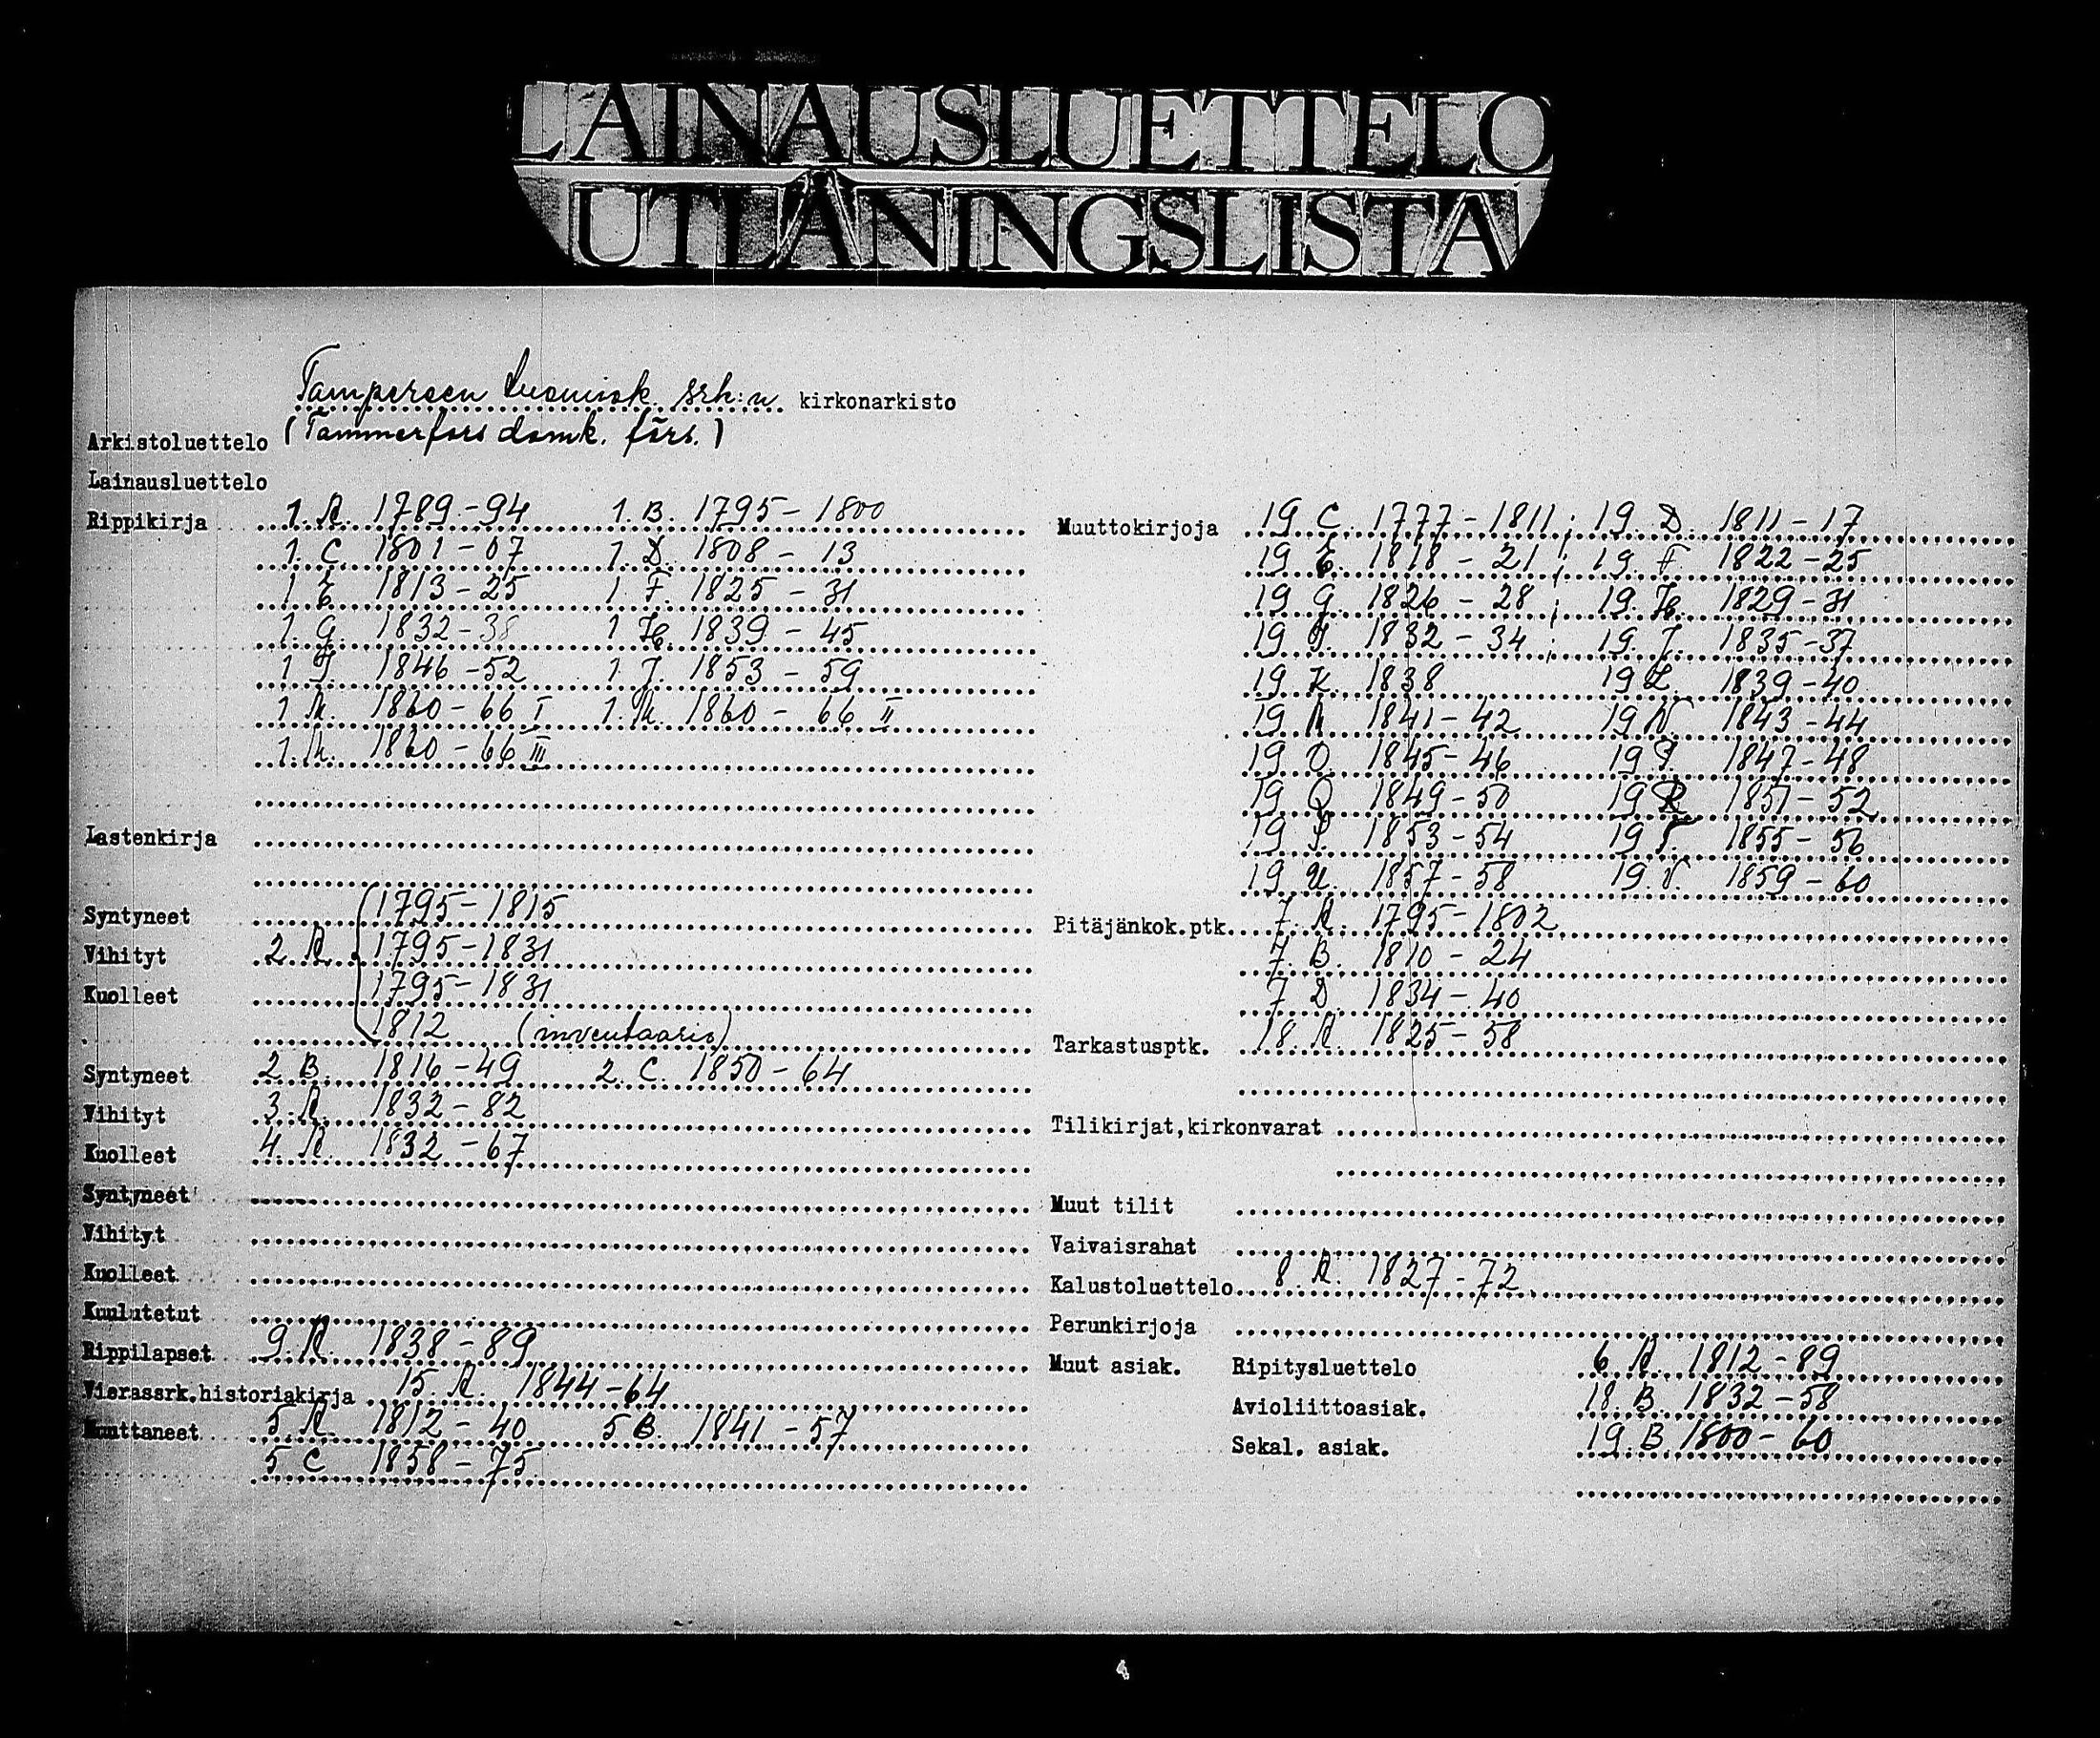 LAINAUSLUETTELO
UTLÅNINGSLISTA
Tampereen tuomiok. srk:n kirkonarkisto
Arkistoluettelo (Tammerfors domk. förs.)
Lainausluettelo
Rippikirja 1. A. 1789-94 1. B. 1795-1800
1. C. 1801-07 1. D. 1808-13
1 E 1813-25 1. F. 1825-31
1. G. 1832-38 1 H. 1839-45
1 I 1846-52 1. J. 1853-59
1 K. 1860-66 I 1. K. 1860-66 II
1. K. 1860-66 III
Lastenkirja
Syntyneet (1795-1815
Vihityt 2. A. 1795-1831
Kuolleet 1795-1831
1812 (inventaario)
Syntyneet 2 B. 1816-49 2. C. 1850-64
Vihityt 3. A. 1832-82
Kuolleet 4. A. 1832-67
Syntyneet
Vihityt
Kuolleet
Kuulutetut
Rippilapset 9. A. 1838-89
Vierassrk.historiakirja 15. A. 1844-64
Muuttaneet 5. A. 1812-40 5 B. 1841-57
5 C 1858-75
Muuttokirjoja 19 C. 1777-1811; 19. D. 1811-17
19 E. 1818-21; 19. F. 1822-25
19 G. 1826-28; 19. H. 1829-31
19 I. 1832-34; 19. J. 1835-37
19 K. 1838 19 L. 1839-40
19 M 1841-42 19 N. 1843-44
19 O. 1845-46 19 P. 1847-48
19 Q 1849-50 19 R 1851-52
19 S. 1853-54 19 T. 1855-56
19 U. 1857-58 19. V. 1859-60
Pitäjänkok.ptk. 7. A. 1795-1802
7. B. 1810-24
7 D. 1834-40
Tarkastusptk. 18. A. 1825-58
Tilikirjat,kirkonvarat
Muut tilit
Vaivaisrahat
Kalustoluettelo 8. A. 1827-72
Perunkirjoja
Muut asiak. Ripitysluettelo 6 A. 1812-89
Avioliittoasiak. 18. B. 1832-58
Sekal. asiak. 19. B. 1800-60